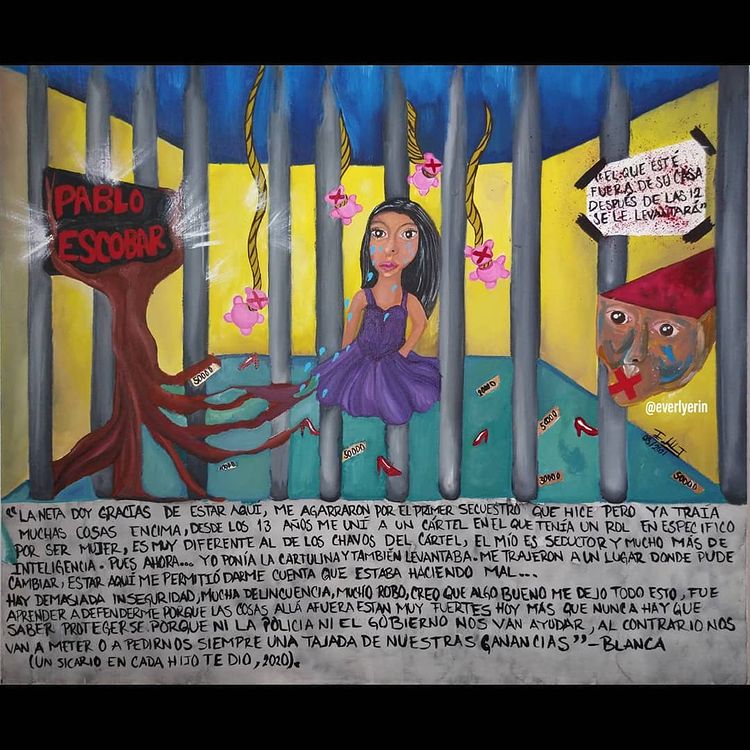 PABLO
ESCOBAR
"EL QUE ESTÉ
FUERA DE SU CASA
DESPUÉS DE LAS 12
SE LE LEVANTARÁ"
50000
2000
50000
50000
30000
50000
@everlyerin
"LA NETA DOY GRACIAS DE ESTAR AQUÍ, ME AGARRARON POR EL PRIMER SECUESTRO QUE HICE PERO YA TRAÍA
MUCHAS COSAS ENCIMA, DESDE LOS 13 AÑOS ME UNÍ A UN CÁRTEL EN EL QUE TENÍA UN ROL EN ESPECIFICO
POR SER MUJER, ES MUY DIFERENTE AL DE LOS CHAVOS DEL CÁRTEL, EL MÍO ES SEDUCTOR Y MUCHO MÁS DE
INTELIGENCIA. PUES AHORA... YO PONÍA LA CARTULINA Y TAMBIÉN LEVANTABA. ME TRAJERON A UN LUGAR DONDE PUDE
CAMBIAR, ESTAR AQUÍ ME PERMITIÓ DARME CUENTA QUE ESTABA HACIENDO MAL...
HAY DEMASIADA INSEGURIDAD, MUCHA DELINCUENCIA, MUCHO ROBO, CREO QUE ALGO BUENO ME DEJO TODO ESTO, FUE
APRENDER A DEFENDERME PORQUE LAS COSAS ALLÁ AFUERA ESTAN MUY FUERTES HOY MÁS QUE NUNCA HAY QUE
SABER PROTEGERSE PORQUE NI LA POLICIA NI EL GOBIERNO NOS VAN AYUDAR, AL CONTRARIO NOS
VAN A METER O A PEDIRNOS SIEMPRE UNA TAJADA DE NUESTRAS GANANCIAS" - BLANCA
(UN SICARIO EN CADA HIJO TE DIO, 2020).